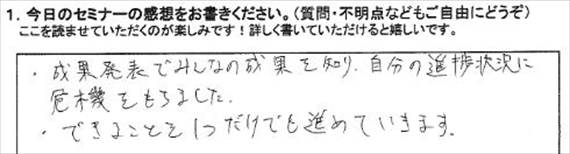 1. 今日のセミナーの感想をお書きください。(質問・不明点などもご自由にどうぞ)
ここを読ませていただくのが楽しみです!詳しく書いていただけると嬉しいです。
・成果発表でみんなの成果を知り、自分の進捗状況に
危機をもちました.
・できることを1つだけでも進めていきます.